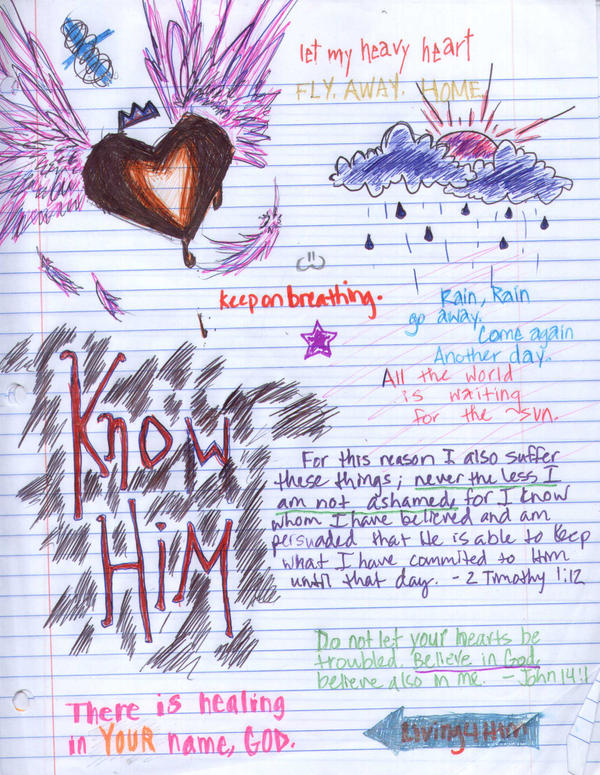 let my heavy heart
FLY. AWAY. HOME.
keep on breathing.
Rain, Rain
go away.
Come again
Another day.
All the world
is waiting
for the sun.
Know
HiM
For this reason I also suffer
these things; never the less I
am not ashamed, for I know
whom I have believed and am
persuaded that He is able to keep
what I have commited to Him
until that day. - 2 Timothy 1:12
Do not let your hearts be
troubled. Believe in God,
believe also in me. - John 14:1
There is healing
in YOUR name, GOD.
Living 4 Him